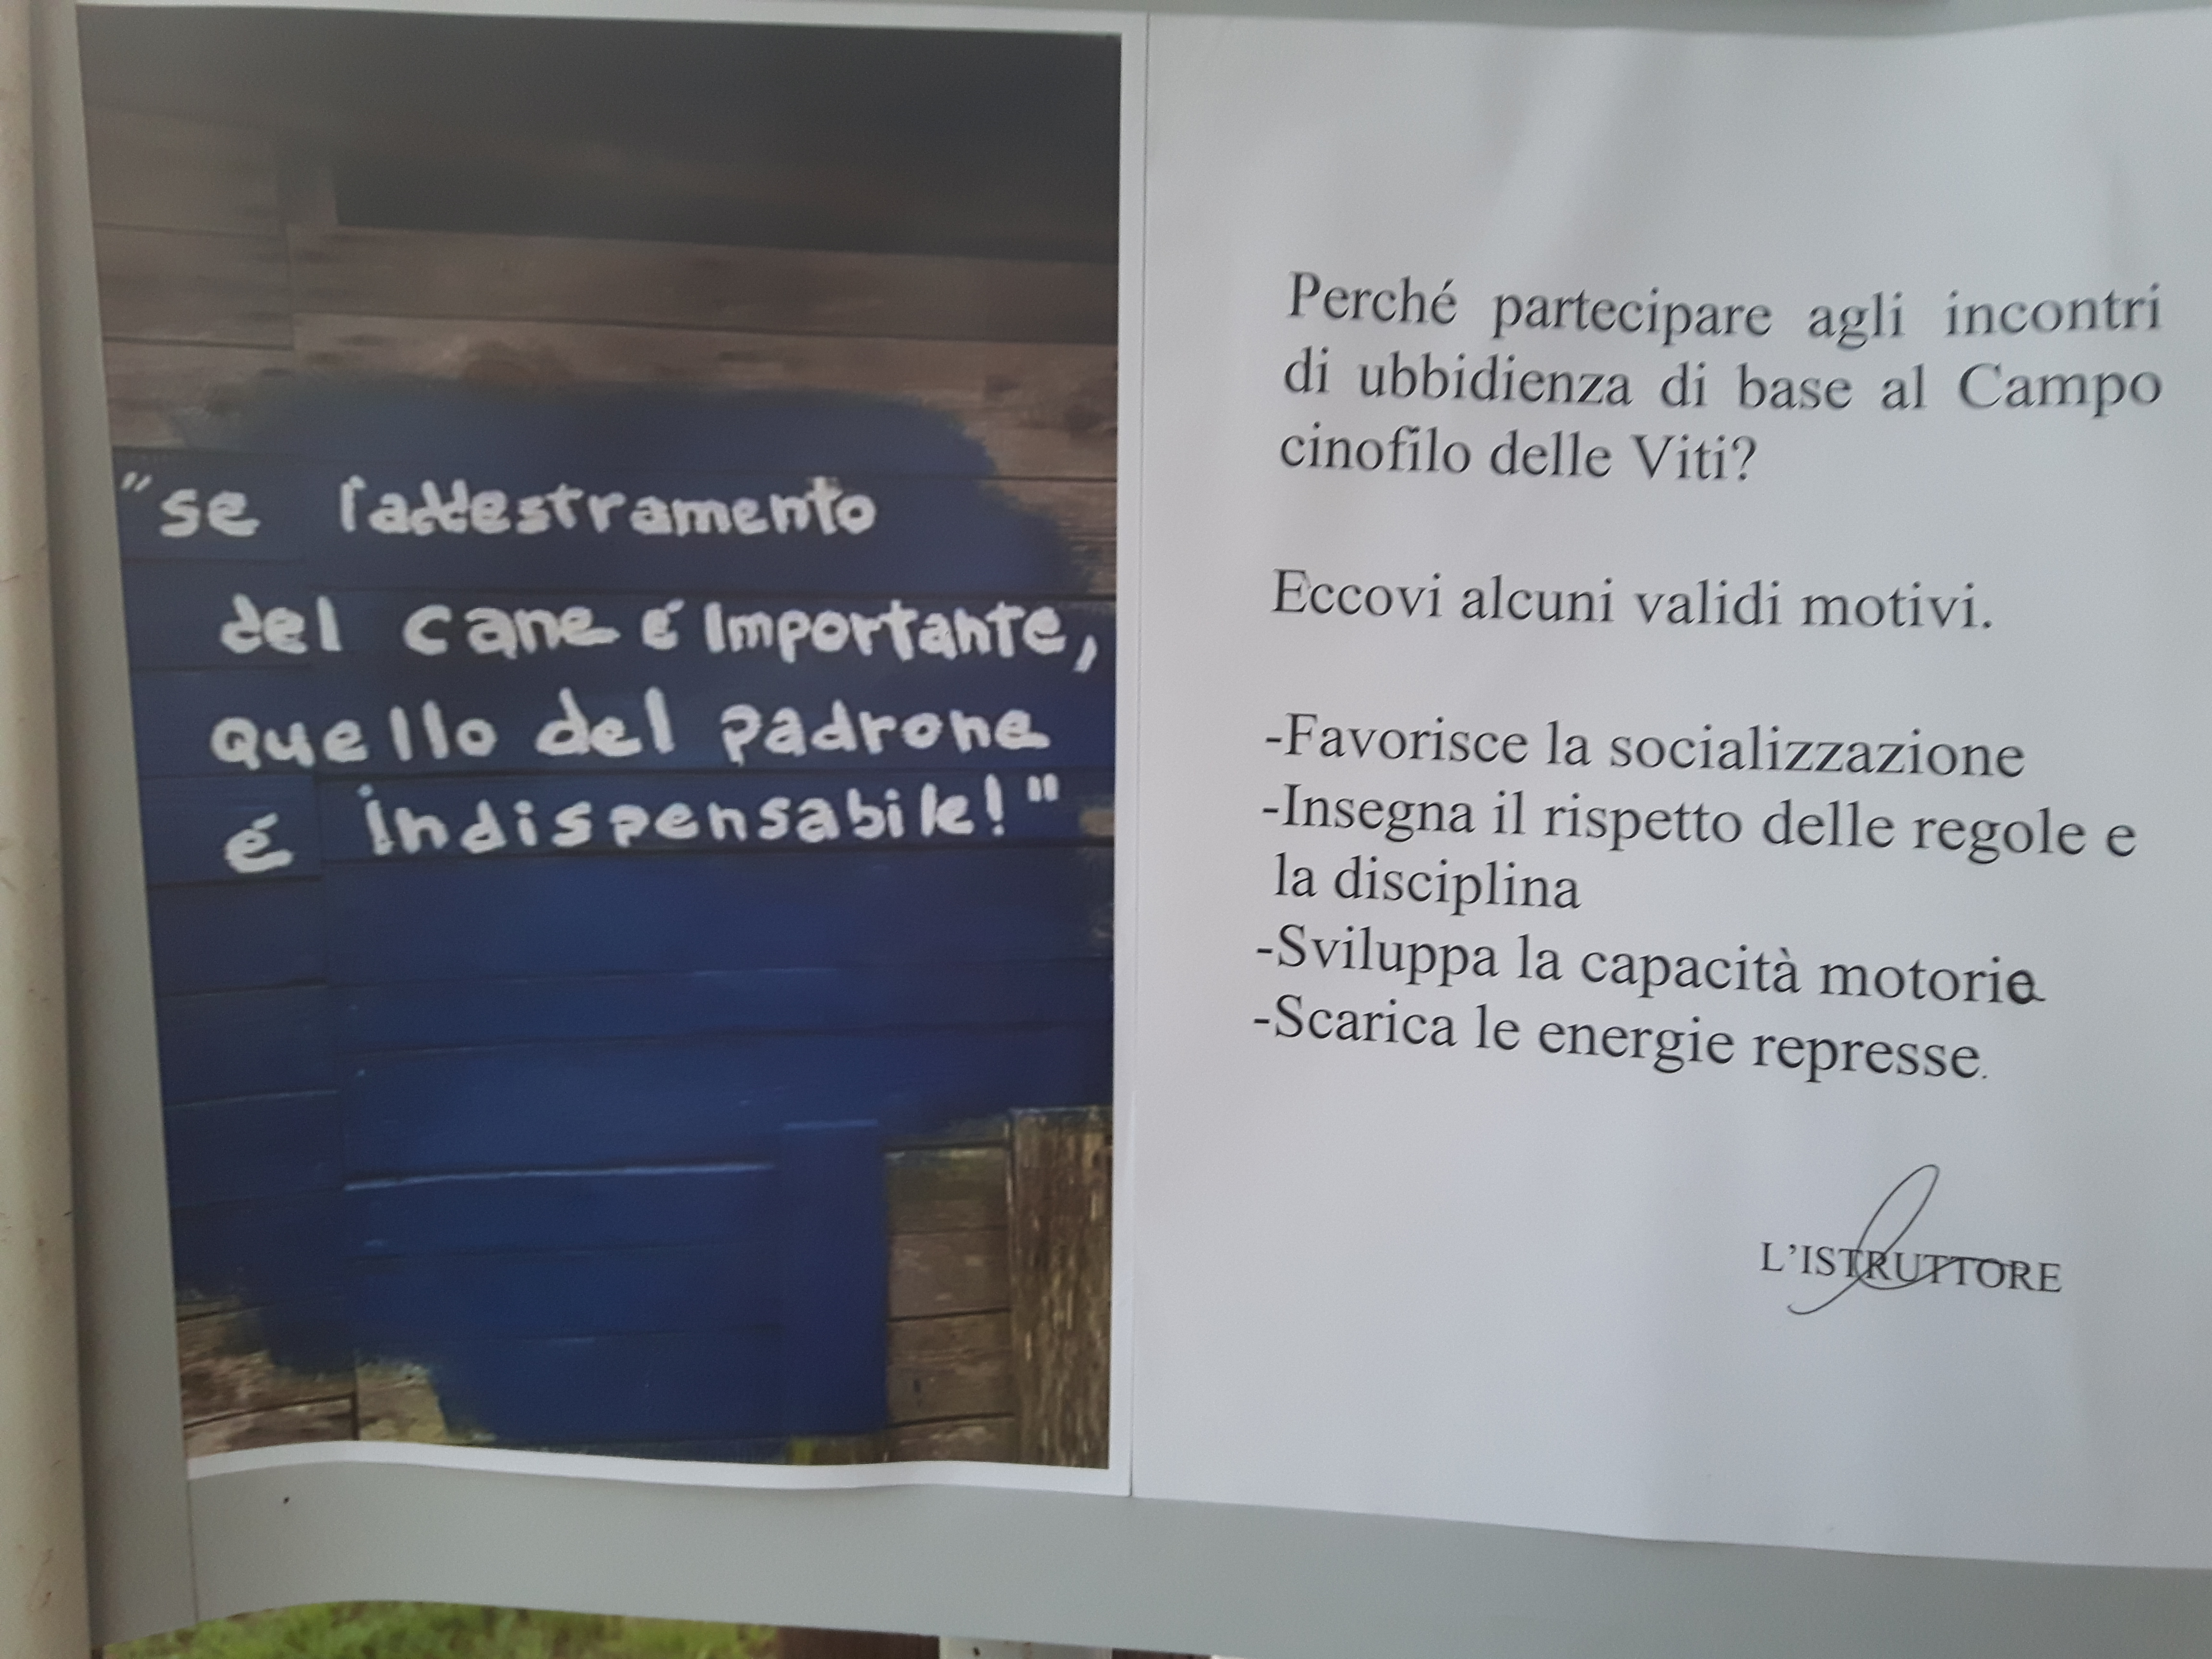 "se l'addestramento
del cane é importante,
quello del padrone
é indispensabile!"
Perché partecipare agli incontri
di ubbidienza di base al Campo
cinofilo delle Viti?
Eccovi alcuni validi motivi.
-Favorisce la socializzazione
-Insegna il rispetto delle regole e
la disciplina
-Sviluppa la capacità motoria
-Scarica le energie represse.
L'ISTRUTTORE